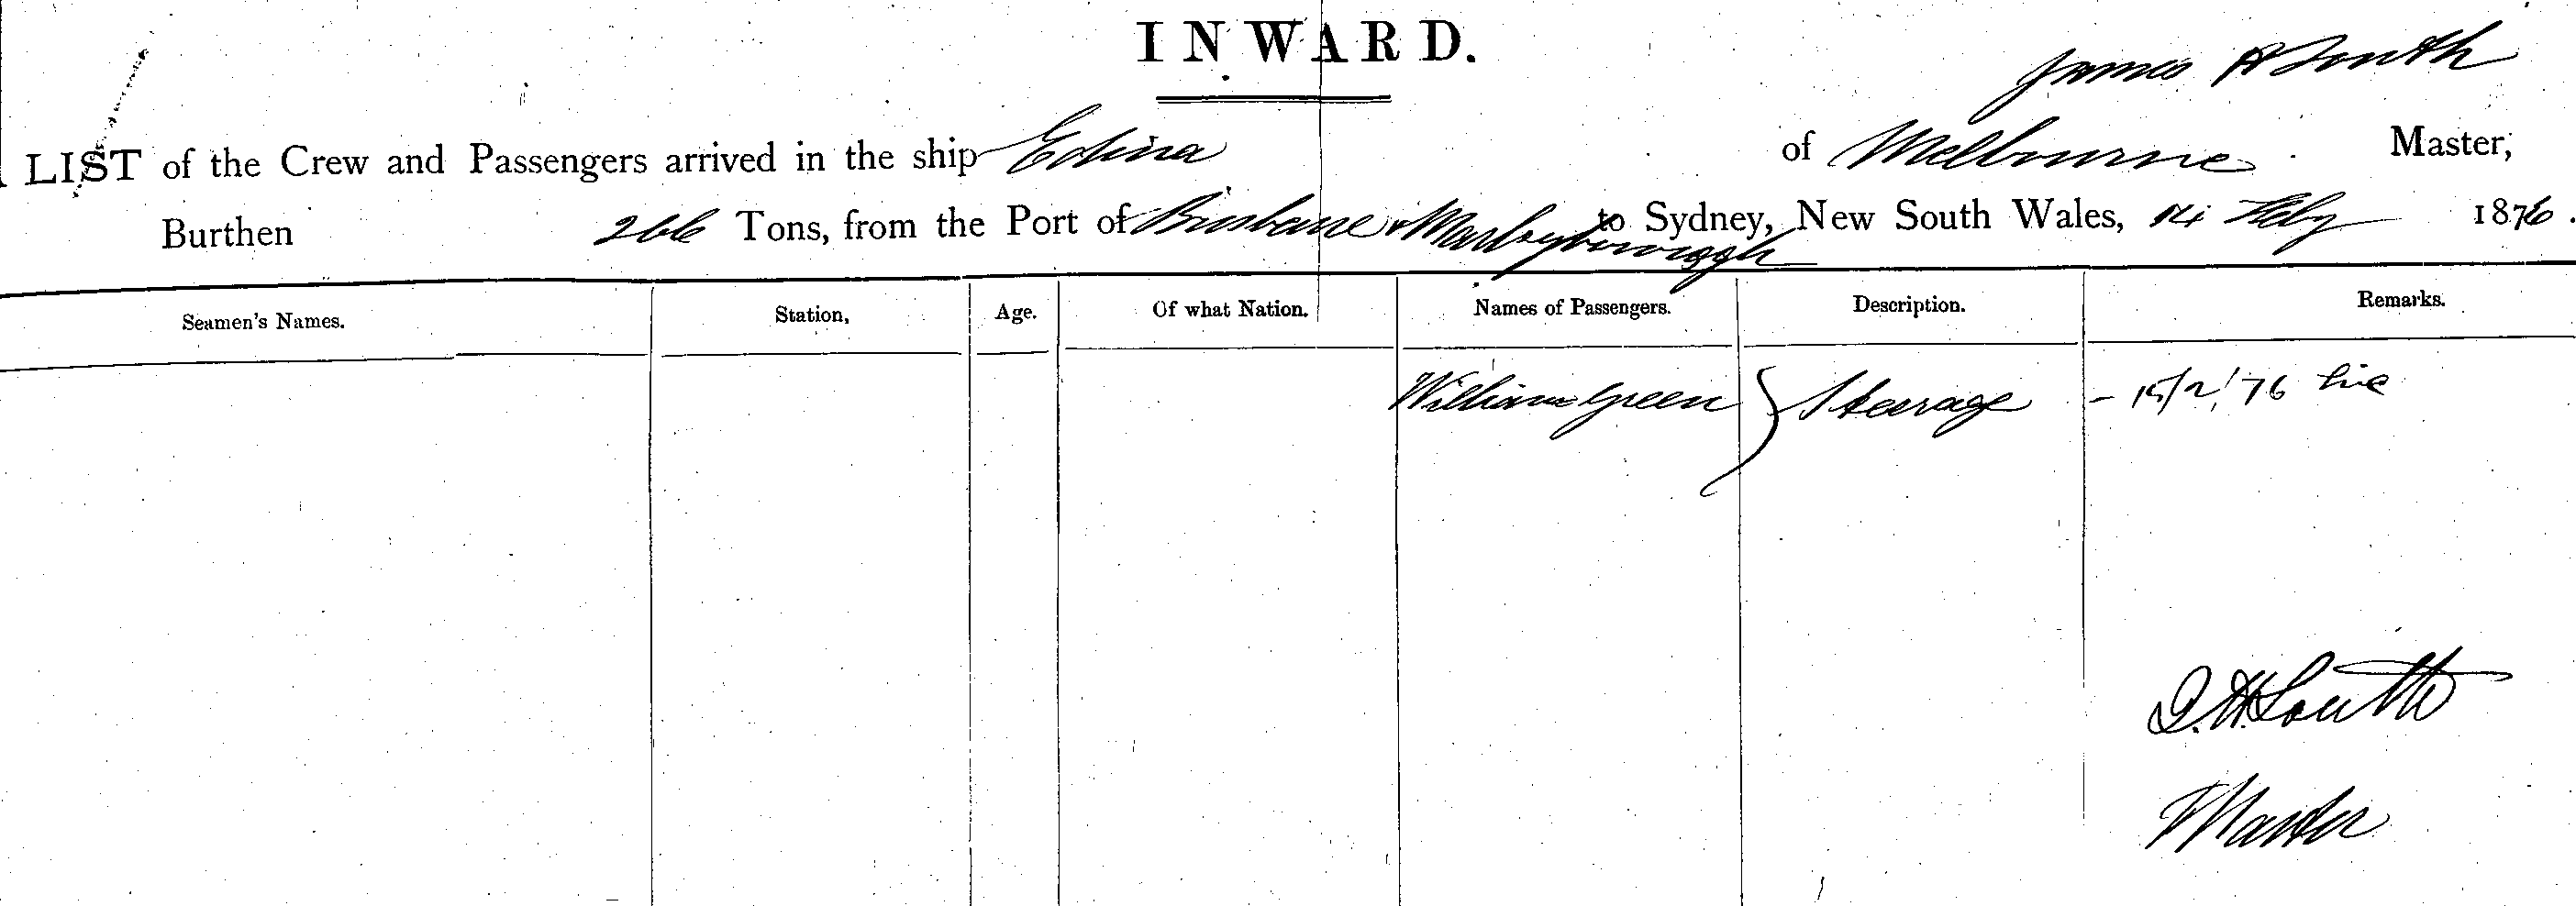 INWARD.
James H South
LIST of the Crew and Passengers arrived in the ship Edina of Melbourne Master,
Burthen 266 Tons, from the Port of Brisbane & Maryborough to Sydney, New South Wales, 14 Feby 1876.
Seamen's Names. Station, Age. Of what Nation. Names of Passengers. Description. Remarks.
William Green } Steerage - 15/2/76
J. H. South
Master